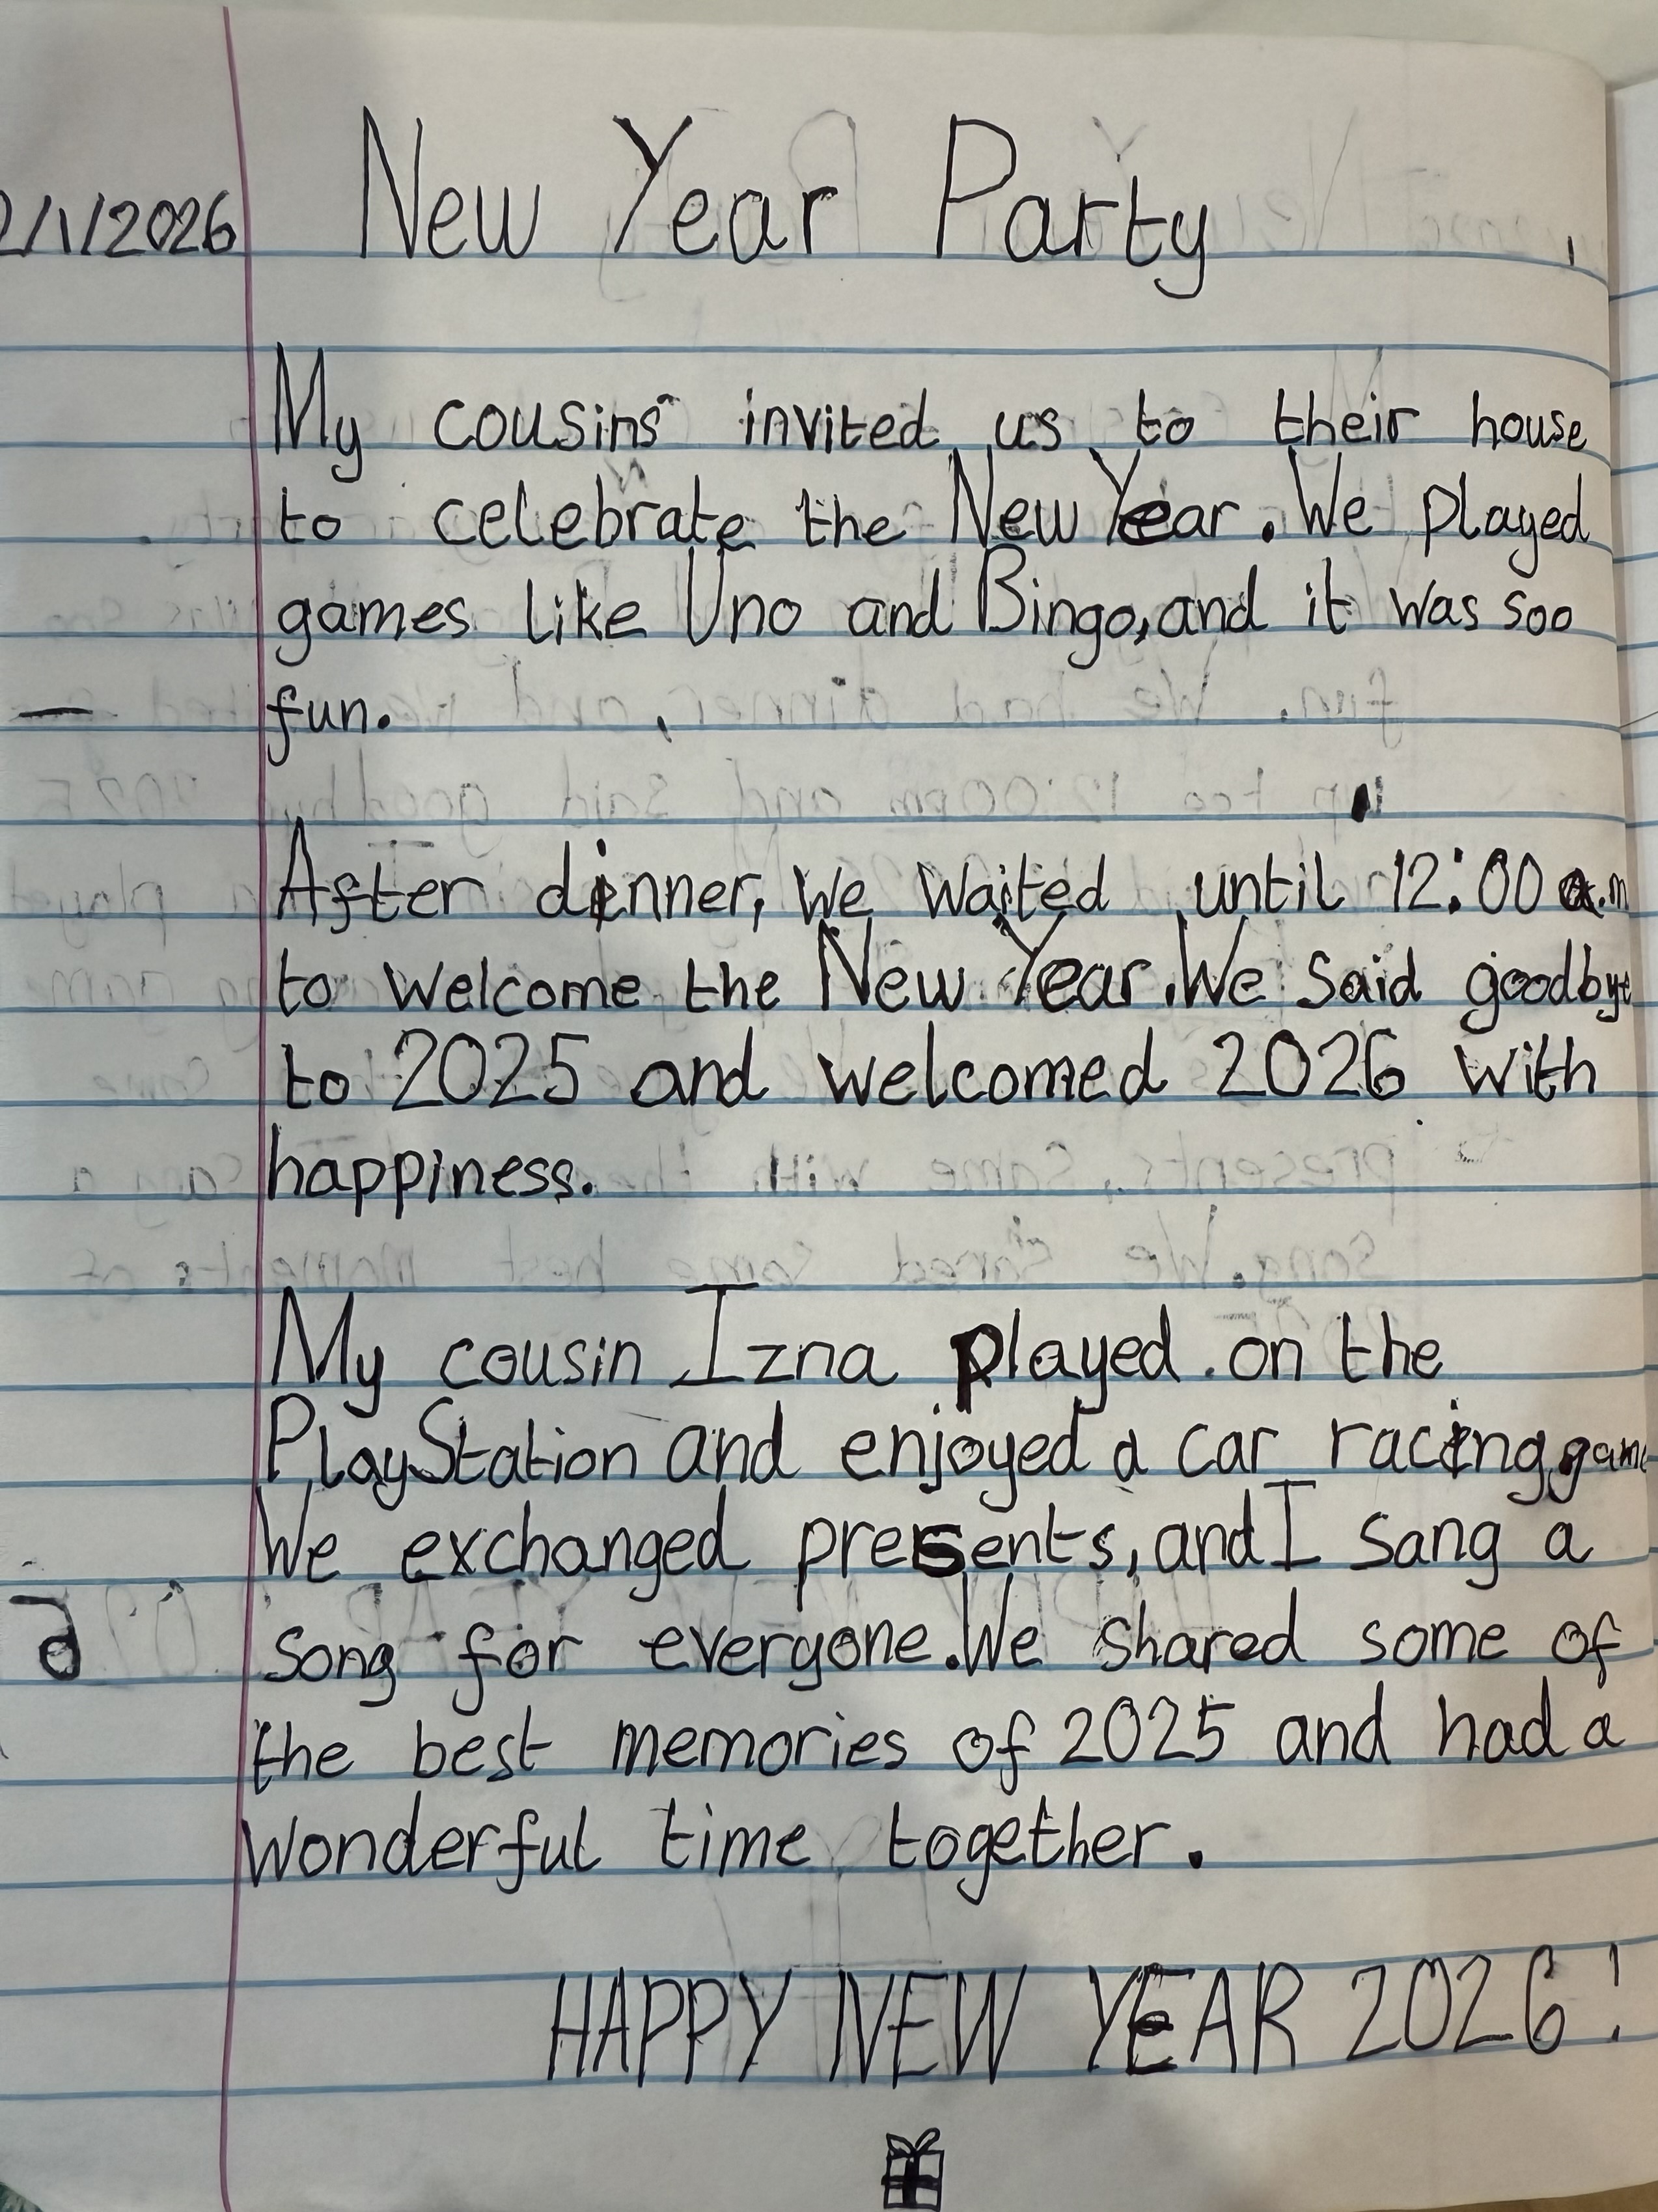 2/1/2026 New Year Party
My cousins invited us to their house
to celebrate the New Year. We played
games like Uno and Bingo, and it was soo
fun.
After dinner, we waited until 12:00 a.m
to welcome the New Year. We said goodbye
to 2025 and welcomed 2026 with
happiness.
My cousin Izna played on the
PlayStation and enjoyed a car racing game
We exchanged presents, and I sang a
song for everyone. We shared some of
the best memories of 2025 and had a
wonderful time together.
HAPPY NEW YEAR 2026!